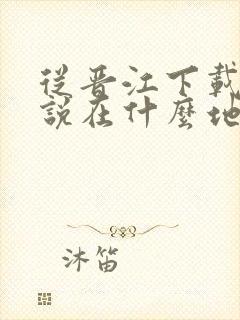 從晉江下載
說在什麼地
沐笛